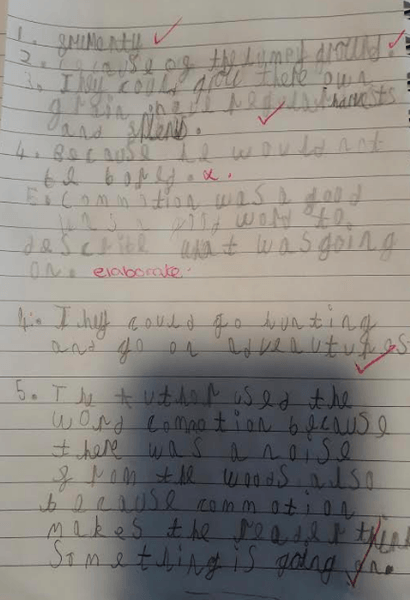 1. grumently
2. because of the lumpy ground.
3. They could grow there own
grain in
and
4. Because he would not
be bored. x.
5. Commotion was a good
was a good word to
describe what was going
on. elaborate.
4. They could go hunting
and go on adventures
5. The author used the
word commotion because
there was a noise
from the woods also
because commotion
makes the reader think
something is going on.